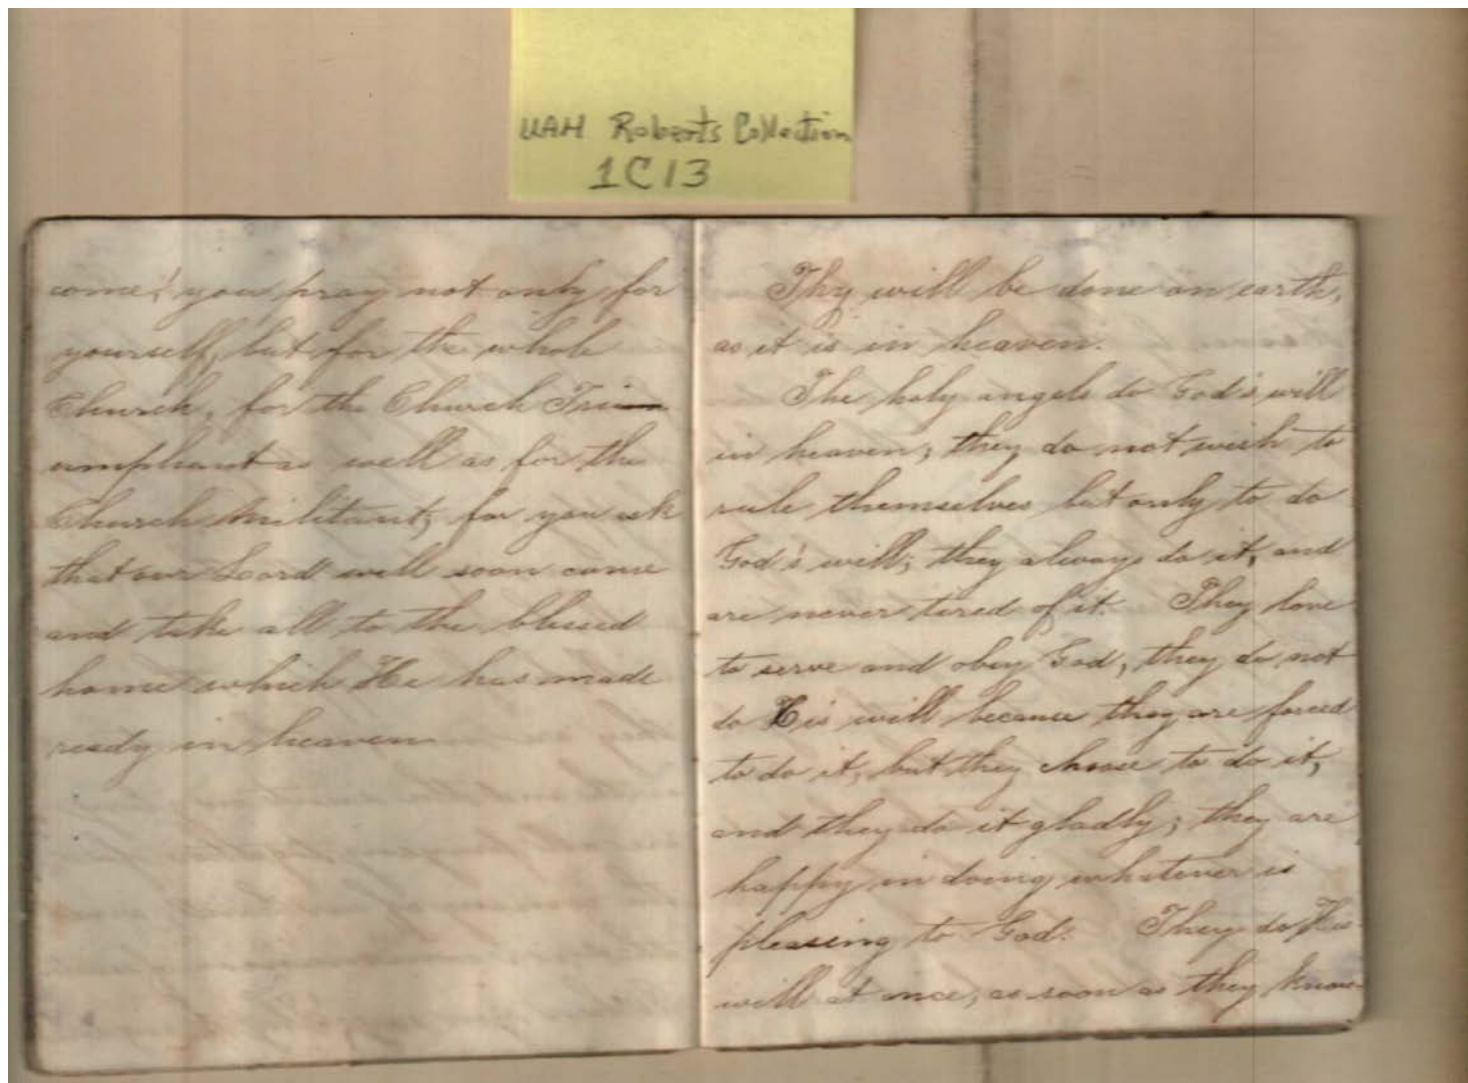 UAH Roberts Collection
1C13
come! you pray not only for
yourself, but for the whole
Church, for the Church Tri
umphant as well as for the
Church Militant, for you ask
that our Loord will soon come
and take all to the blessed
home which He has made
ready in heaven
Thy will be done on earth,
as it is in heaven.
The holy angels do God's will
in heaven; they do not wish to
rule themselves but only to do
God's will; they always do it, and
are never tired of it. They love
to serve and obey God, they do not
do His will because they are forced
to do it, but they choose to do it,
and they do it gladly; they are
happy in doing whatever is
pleasing to God. They do His
will at once, as soon as they know